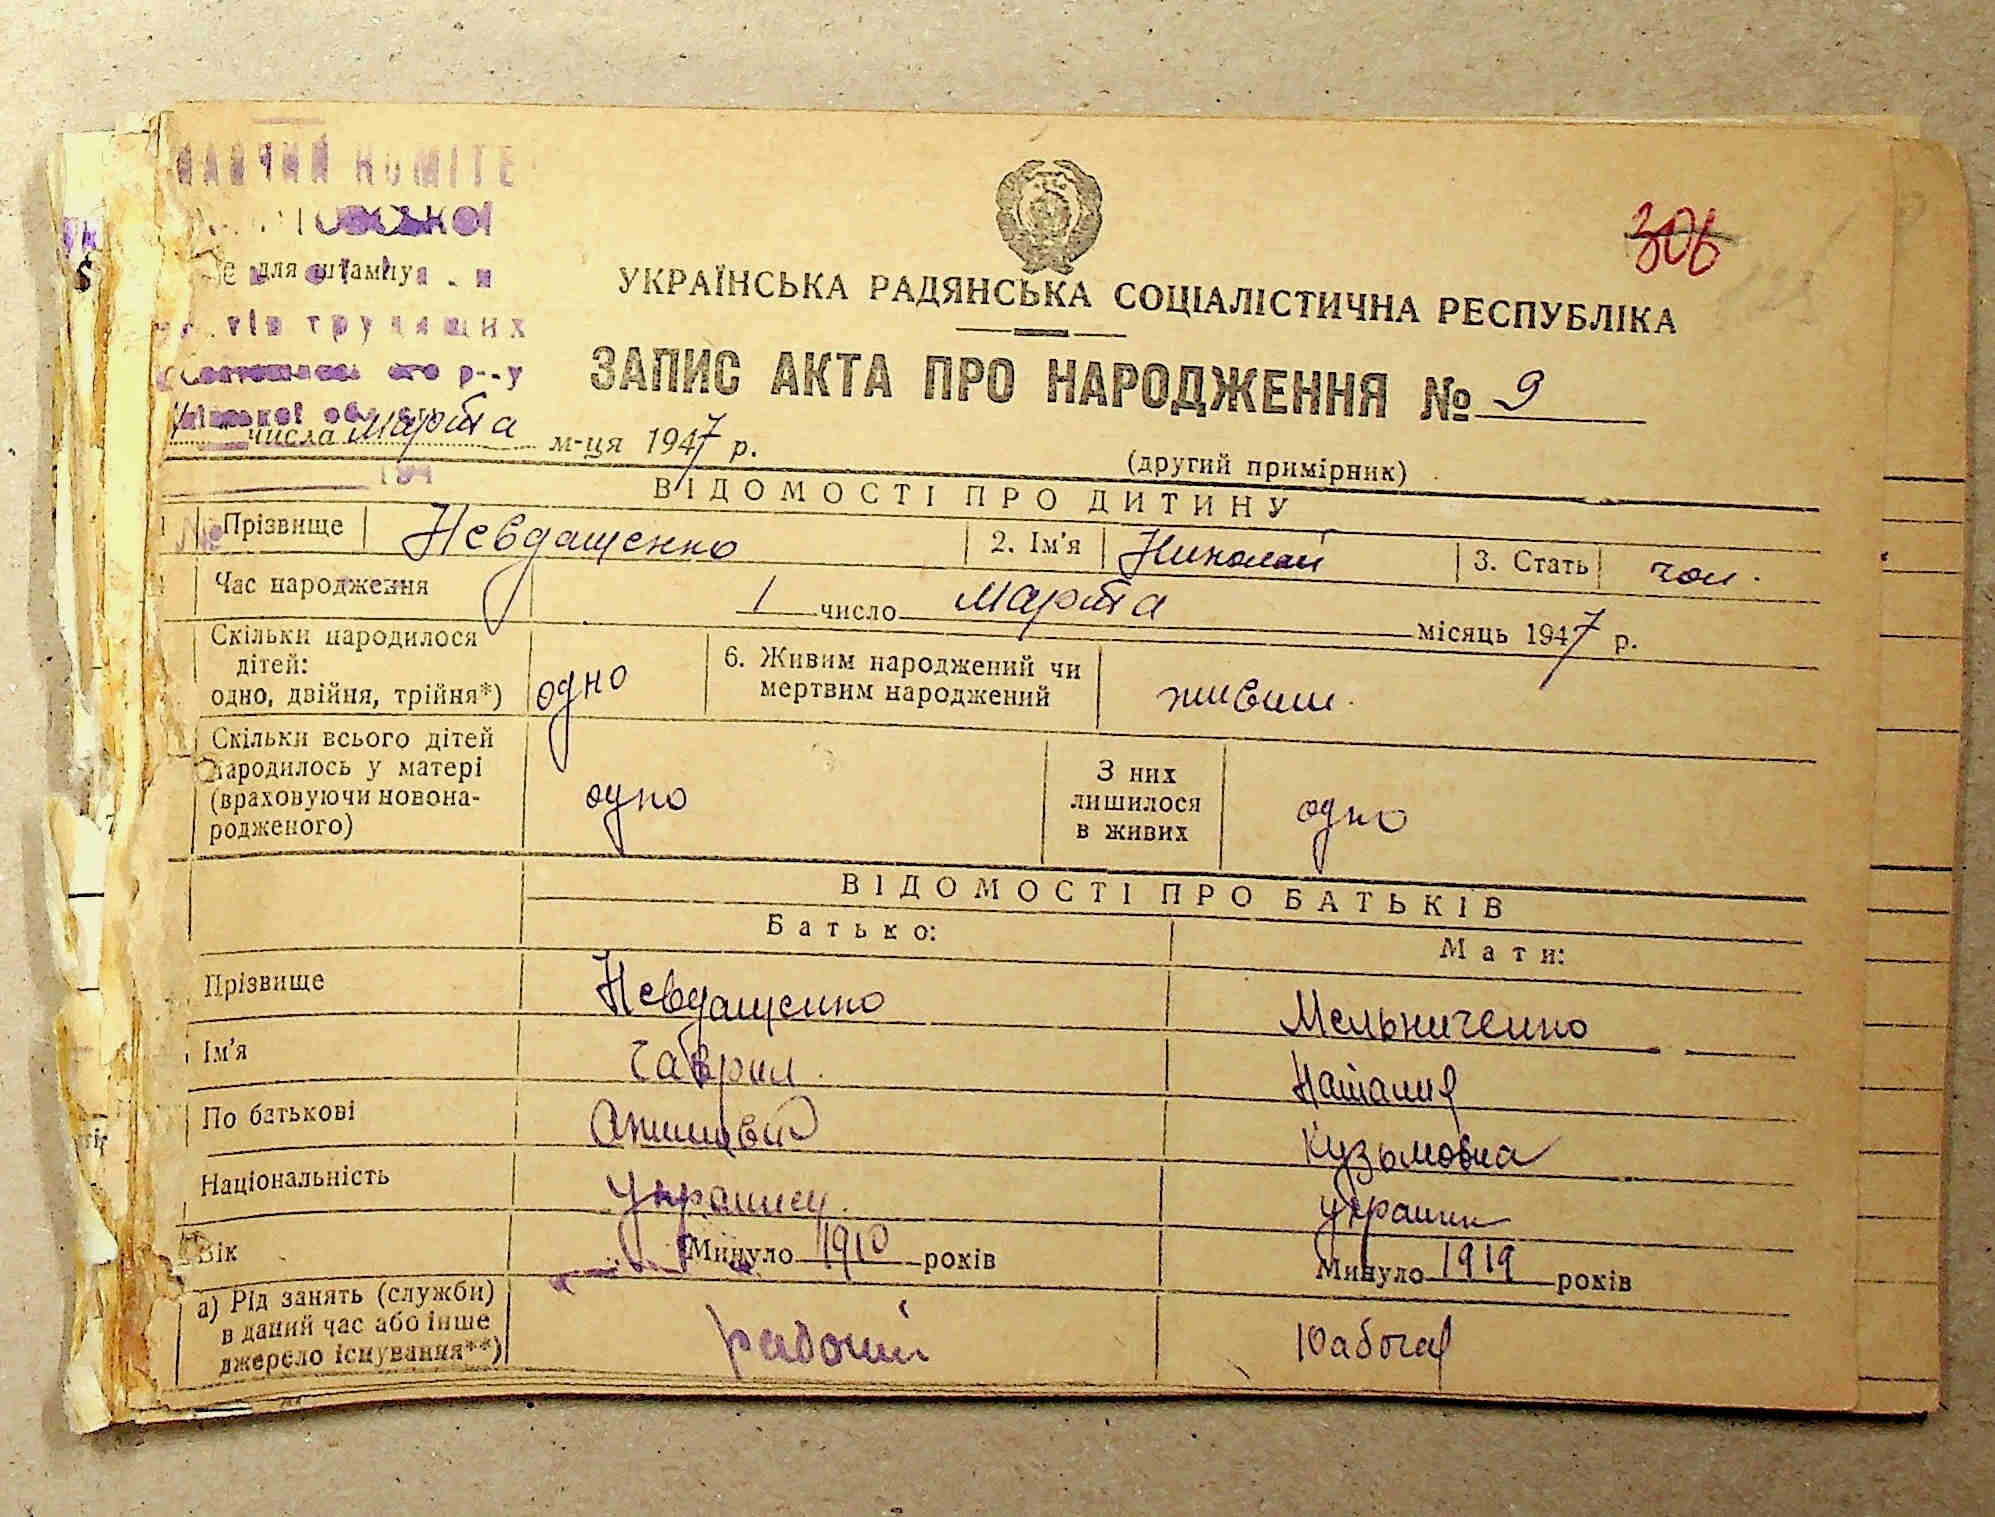 306
для штампу
трудящих
УКРАЇНСЬКА РАДЯНСЬКА СОЦІАЛІСТИЧНА РЕСПУБЛІКА
ЗАПИС АКТА ПРО НАРОДЖЕННЯ № 9
числа марта м-ця 1947 р.
(другий примірник)
194
ВІДОМОСТІ ПРО ДИТИНУ
Прізвище Невдащенко 2. Ім'я Николай 3. Стать чол.
Час народження 1 число марта місяць 1947 р.
Скільки народилося
дітей:
одно, двійня, трійня*) одно
6. Живим народжений чи
мертвим народжений живим.
Скільки всього дітей
народилось у матері
(враховуючи новона-
родженого) одно
З них
лишилося
в живих одно
ВІДОМОСТІ ПРО БАТЬКІВ
Батько: Мати:
Прізвище Невдащенко Мельниченко
Ім'я Гаврил Наталия
По батькові Кузьмовна
Національність украинец. украин
Вік Минуло 1910 років Минуло 1919 років
а) Рід занять (служби)
в даний час або інше
джерело існування**) рабочий рабочая